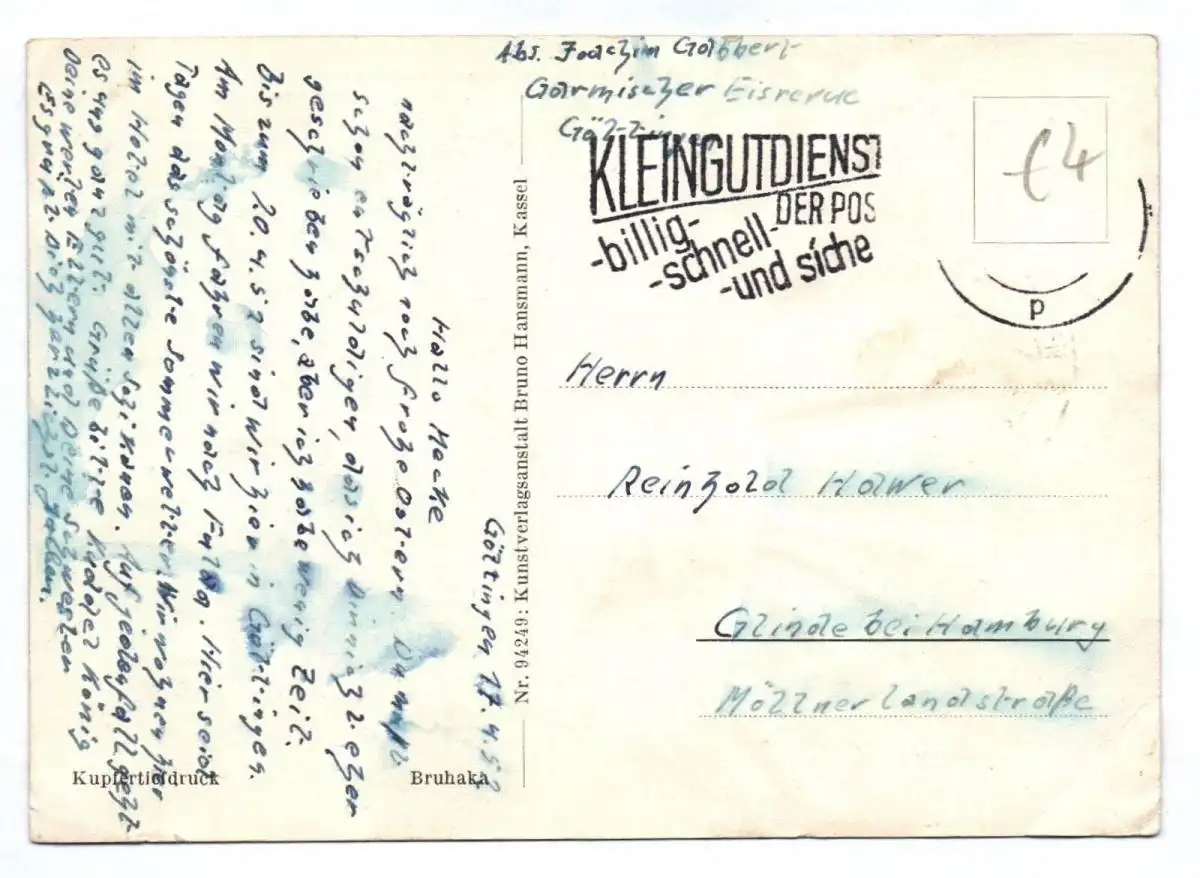 Abs. Joachim Gabbert
Garmischer Eisrevue
Göttingen
KLEINGUTDIENST
DER POS
-billig-
-schnell-
-und siche
p
€4
Herrn
Reinhold Hawer
Glinde bei Hamburg
Möllnerlandstraße
Nr. 94249: Kunstverlagsanstalt Bruno Hansmann, Kassel
Göttingen, 17.4.52
Hallo Macke
nachträglich noch frohe Ostern. Du mußt
schon entschuldigen, das ich Dir nicht eher
geschrieben habe, aber ich habe wenig Zeit.
Bis zum 20.4.52 sind wir hier in Göttingen.
Am Montag fahren wir nach Fulda. Hier seid
Tagen das schönste Sommerwetter. Wir wohnen hier
im Hotel mit allen Schikanen. Auf jedenfall geht
es uns ganz gut. Grüße bitte Kuddel König
Deine werten Eltern und Deine Schwestern
Es grüßt Dich herzlichst
Kupfertiefdruck
Bruhaka